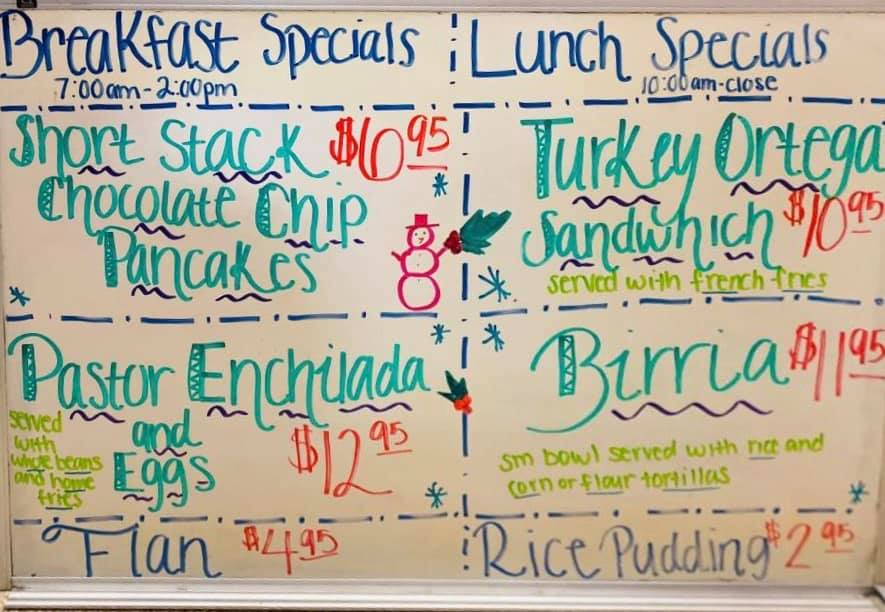 Breakfast Specials
7:00am-2:00pm
Short Stack $6.95
Chocolate Chip
Pancakes
Pastor Enchilada
and
Eggs
served
with
whole beans
and home
fries
$12.95
Flan $4.95
Lunch Specials
10:00am-close
Turkey Ortega
Sandwhich $10.95
served with french fries
Birria $11.95
sm bowl served with rice and
corn or flour tortillas
Rice Pudding $2.95